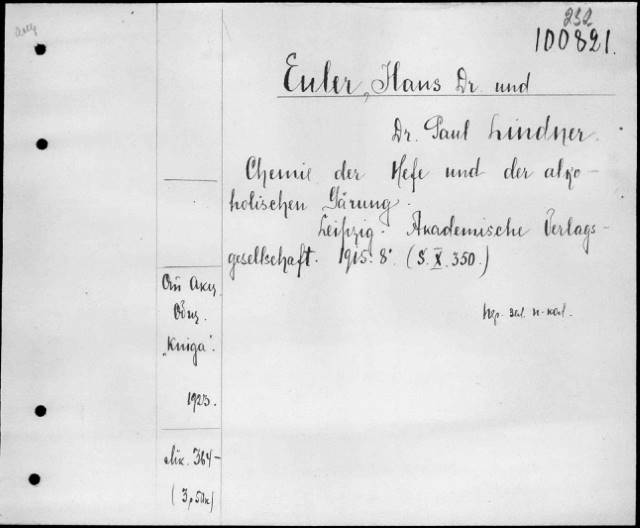 232
100821.
Euler, Hans Dr. und
Dr. Paul Lindner.
Chemie der Hefe und der alko-
holischen Gärung.
Leipzig. Akademische Verlags-
gesellschaft. 1915. 8°. (S. X. 350.)
От Акц.
Общ.
„Kniga".
1923.
364-